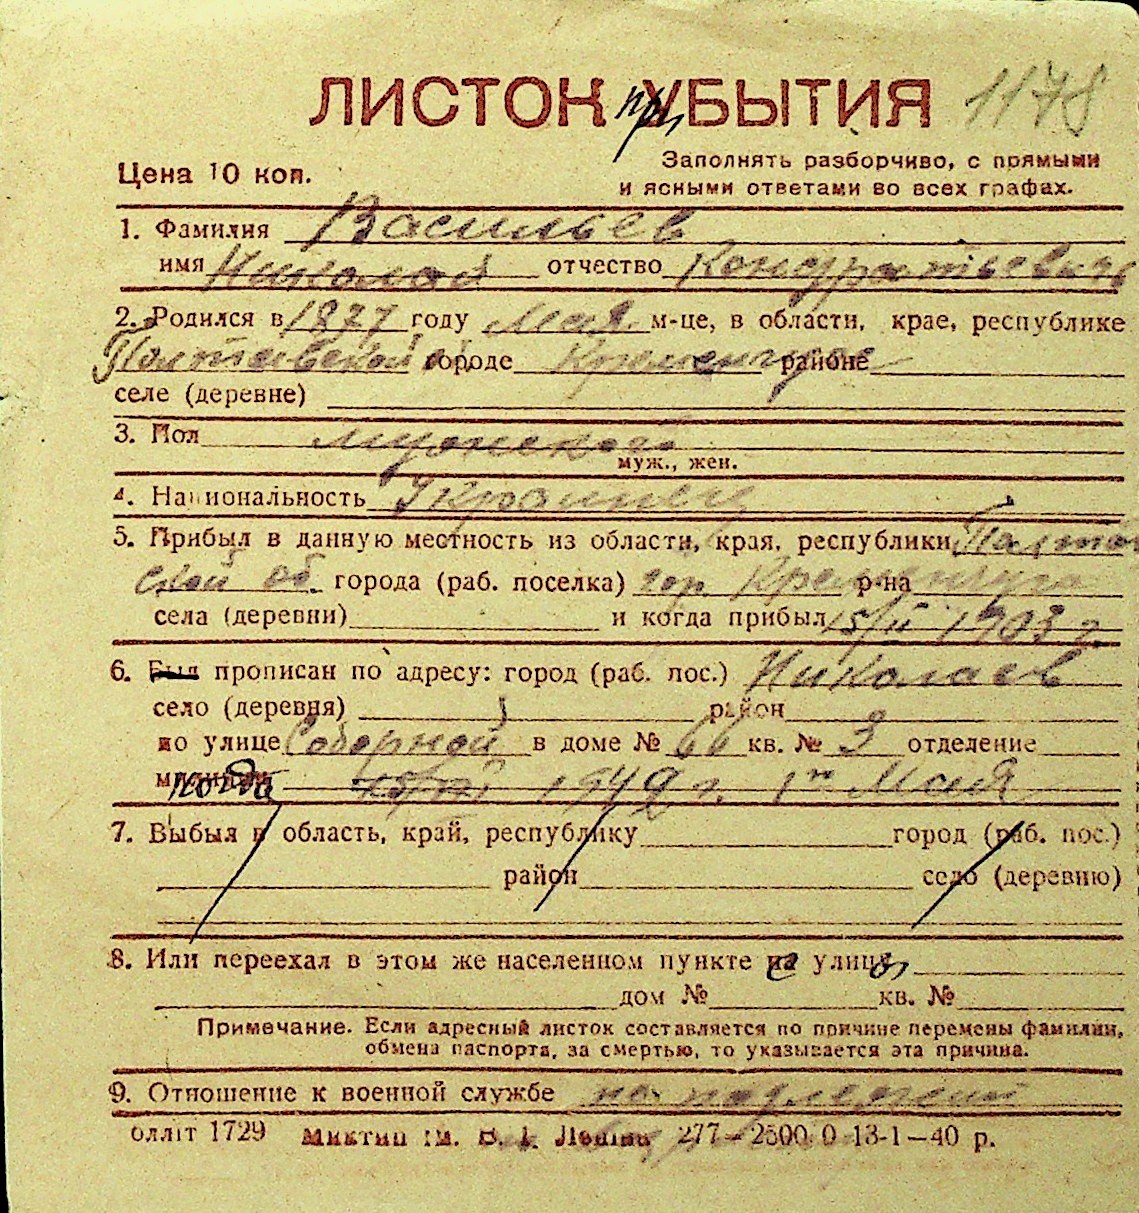 ЛИСТОК при УБЫТИЯ 1178
Цена 10 коп.
Заполнять разборчиво, с прямыми
и ясными ответами во всех графах.
1. Фамилия Васильев
имя Николай отчество Кондратьевич
2. Родился в 1877 году Мая м-це, в области, крае, республике
Полтавской об городе Кременчуге районе
селе (деревне)
3. Пол мужского
муж., жен.
4. Национальность Украинец
5. Прибыл в данную местность из области, края, республики Полтав
ской об. города (раб. поселка) гор. Кременчуга р-на
села (деревни) и когда прибыл 15/II 1903 г.
6. Был прописан по адресу: город (раб. пос.) Николаев
село (деревня) район
по улице Соборной в доме № 66 кв. № 3 отделение
когда 1942 г. 1го Мая
7. Выбыл в область, край, республику город (раб. пос.)
район село (деревню)
8. Или переехал в этом же населенном пункте с улицы
дом № кв. №
Примечание. Если адресный листок составляется по причине перемены фамилии,
обмена паспорта, за смертью, то указывается эта причина.
9. Отношение к военной службе не подлежит
олліт 1729 277—2500 0 13-1—40 р.